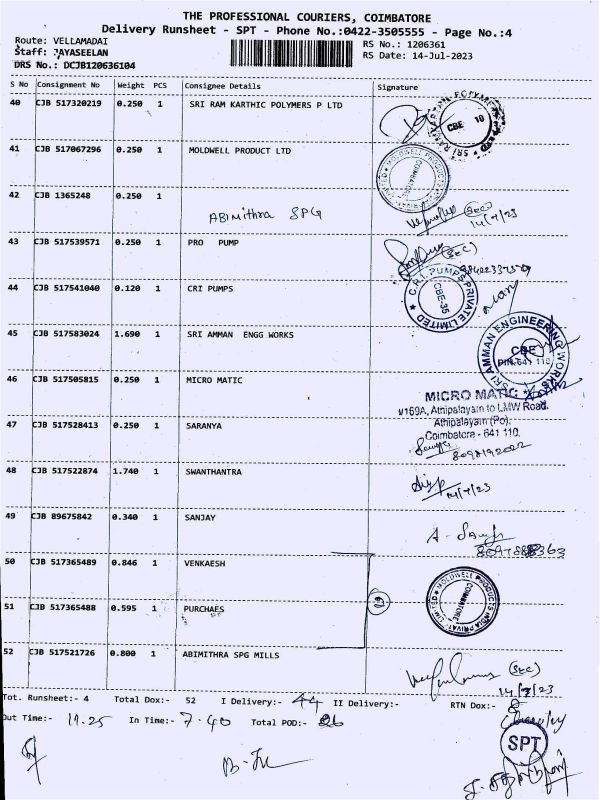 THE PROFESSIONAL COURIERS, COIMBATORE
Delivery Runsheet - SPT - Phone No.:0422-3505555 - Page No.:4
Route: VELLAMADAI
RS No.: 1206361
Staff: JAYASEELAN
RS Date: 14-Jul-2023
DRS No.: DCJB120636104
S No Consignment No Weight PCS Consignee Details Signature
40 CJB 517320219 0.250 1 SRI RAM KARTHIC POLYMERS P LTD
CBE 10
41 CJB 517067296 0.250 1 MOLDWELL PRODUCT LTD
COIMBATORE
42 CJB 1365248 0.250 1
ABIMITHRA SPG
14/7/23
43 CJB 517539571 0.250 1 PRO PUMP
44 CJB 517541040 0.120 1 CRI PUMPS
C.R.I. PUMPS PRIVATE LIMITED
CBE-35
45 CJB 517583024 1.690 1 SRI AMMAN ENGG WORKS
SRI AMMAN ENGINEERING WORKS
CBE
PIN:641 110
46 CJB 517505815 0.250 1 MICRO MATIC
MICRO MATIC
Athipalayam to LMW Road,
Athipalayam (Po),
Coimbatore - 641 110.
47 CJB 517528413 0.250 1 SARANYA
48 CJB 517522874 1.740 1 SWANTHANTRA
14/7/23
49 CJB 89675842 0.340 1 SANJAY
50 CJB 517365489 0.846 1 VENKAESH
51 CJB 517365488 0.595 1 PURCHAES
MOLDWELL PRODUCTS INDIA PRIVATE LIMITED
COIMBATORE
52 CJB 517521726 0.800 1 ABIMITHRA SPG MILLS
(Sec)
14/7/23
Tot. Runsheet:- 4 Total Dox:- 52 I Delivery:- 44 II Delivery:- RTN Dox:- 8
Out Time:- 11.25 In Time:- 7.40 Total POD:- 26
SPT